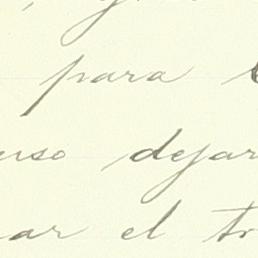 para
uso dejar
ar el tr